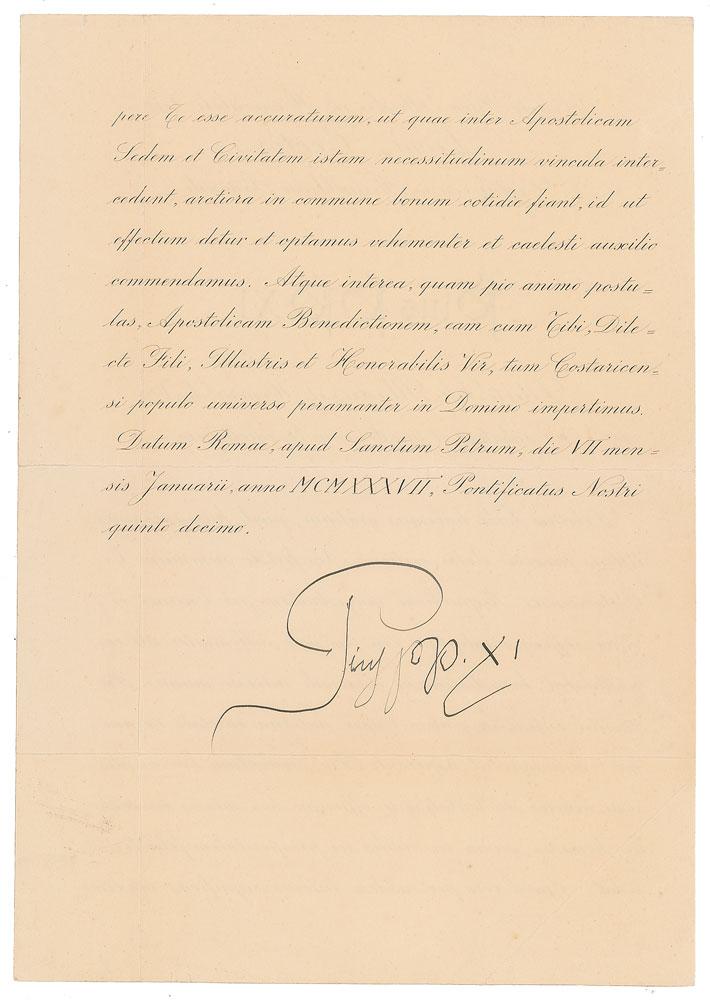 pere Te esse accuraturum, ut quae inter Apostolicam
Sedem et Civitatem istam necessitudinum vincula inter=
cedunt, arctiora in commune bonum cotidie fiant, id ut
effectum detur et optamus vehementer et caelesti auxilio
commendamus. Atque interea, quam pio animo postu=
las, Apostolicam Benedictionem, eam cum Tibi, Dile=
cte Fili, Illustris et Honorabilis Vir, tum Costaricen=
si populo universo peramanter in Domino impertimus.
Datum Romae, apud Sanctum Petrum, die VII men=
sis Januarii, anno MCMXXXVII, Pontificatus Nostri
quinto decimo.
Pius pp. XI